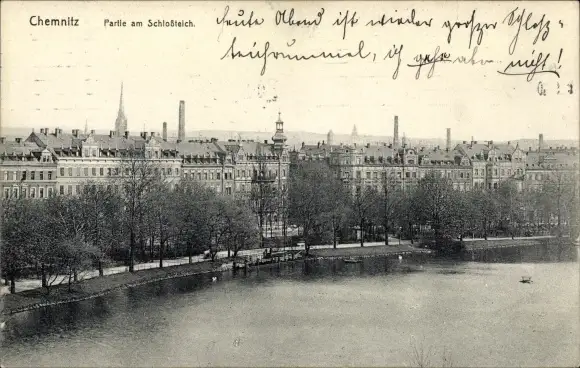 Chemnitz Partie am Schloßteich.
heute Abend ist wieder großer Schloß=
teichrummel, ich gehe aber nicht!